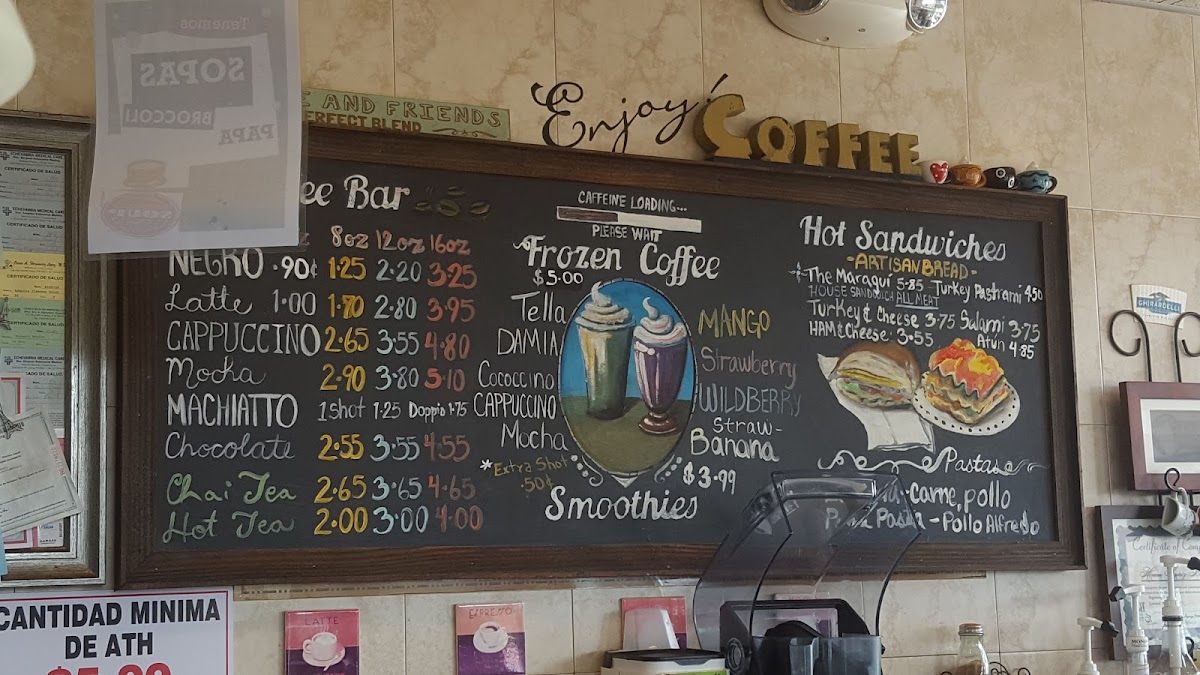 Tenemos
SOPAS
BROCCOLI
PAPA
AND FRIENDS
PERFECT BLEND
Enjoy!
COFFEE
ee Bar
8oz 12oz 16oz
NEGRO .90¢ 1.25 2.20 3.25
Latte 1.00 1.70 2.80 3.95
CAPPUCCINO 2.65 3.55 4.80
Mocha 2.90 3.80 5.10
MACHIATTO 1 shot 1.25 Doppio 1.75
Chocolate 2.55 3.55 4.55
Chai Tea 2.65 3.65 4.65
Hot Tea 2.00 3.00 4.00
CAFFEINE LOADING...
PLEASE WAIT
Frozen Coffee
$5.00
Tella
DAMIA
Cococcino
CAPPUCCINO
Mocha
*Extra Shot
.50¢
MANGO
Strawberry
WILDBERRY
Straw-
Banana
$3.99
Smoothies
Hot Sandwiches
-ARTISAN BREAD-
The Maraqui 5.85 Turkey Pastrami 4.50
HOUSE SANDWICH ALL MEAT
Turkey & Cheese 3.75 Salami 3.75
HAM & Cheese 3.55 Atún 4.85
Pastas
carne, pollo
Pasta - Pollo Alfredo
GHIRARDELLI
CERTIFICADO DE SALUD
CERTIFICADO DE SALUD
CERTIFICADO DE SALUD
CERTIFICADO DE SALUD
CANTIDAD MINIMA
DE ATH
LATTE
ESPRESSO